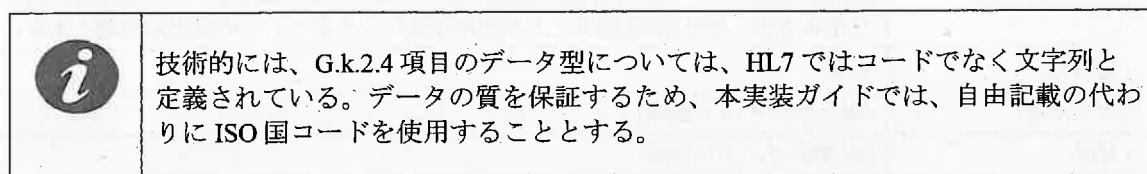 技術的には、G.k.2.4 項目のデータ型については、HL7 ではコードでなく文字列と
定義されている。データの質を保証するため、本実装ガイドでは、自由記載の代わ
りに ISO 国コードを使用することとする。